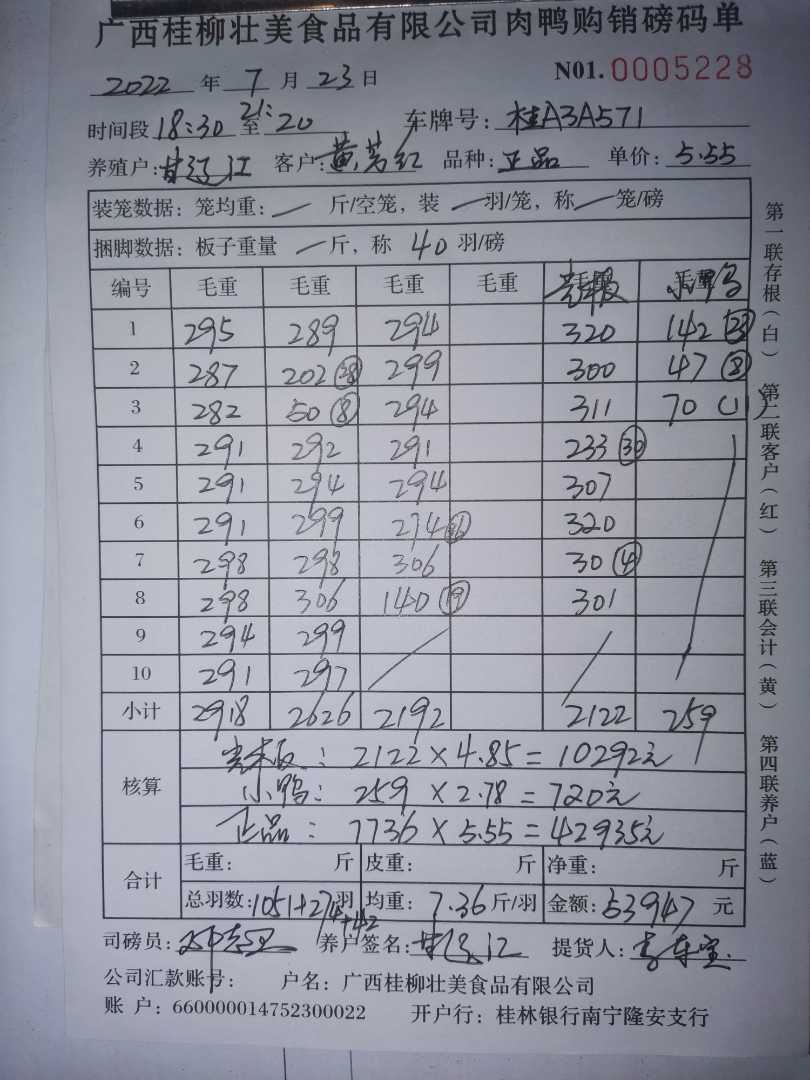 广西桂柳壮美食品有限公司肉鸭购销磅码单
2022 年 7 月 23 日 N01. 0005228
时间段 18:30 至 21:20 车牌号: 桂A3A571
养殖户: 甘 江 客户: 黄 红 品种: 正品 单价: 5.55
装笼数据: 笼均重: 斤/空笼, 装 羽/笼, 称 笼/磅
捆脚数据: 板子重量 斤, 称 40 羽/磅
编号 毛重 毛重 毛重 毛重 毛重 小鸭
1 295 289 294 320 142 (23)
2 287 202 (28) 299 300 47 (8)
3 282 50 (8) 294 311 70 (11)
4 291 292 291 233 (30)
5 291 294 294 307
6 291 299 274 320
7 298 298 306 30 (4)
8 298 306 140 (19) 301
9 294 299
10 291 297
小计 2918 2626 2192 2122 259
核算
: 2122 × 4.85 = 10292元
小鸭: 259 × 2.78 = 720元
正品: 7736 × 5.55 = 42935元
合计 毛重: 斤 皮重: 斤 净重: 斤
总羽数: 1051+274+42 羽 均重: 7.36 斤/羽 金额: 53947 元
司磅员: 养户签名: 甘 江 提货人:
公司汇款账号: 户名: 广西桂柳壮美食品有限公司
账 户: 660000014752300022 开户行: 桂林银行南宁隆安支行
第一联存根(白) 第二联客户(红) 第三联会计(黄) 第四联养户(蓝)